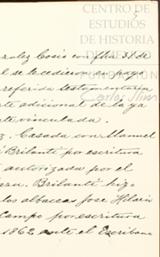 CENTRO DE
ESTUDIOS
DE HISTORIA
DE MEXICO
Carlos Slim
zalez Cosio con fha. 31 de
al se le cedieron en pago
referida testamentaria
te adicional de la ya
te vinculada.
z. Casada con Manuel
Brilanti por escritura
autorizada por el
era. Brilanti hiz.
los albaceas José Hilario
Campo por escritura
1862 ante el Escribano